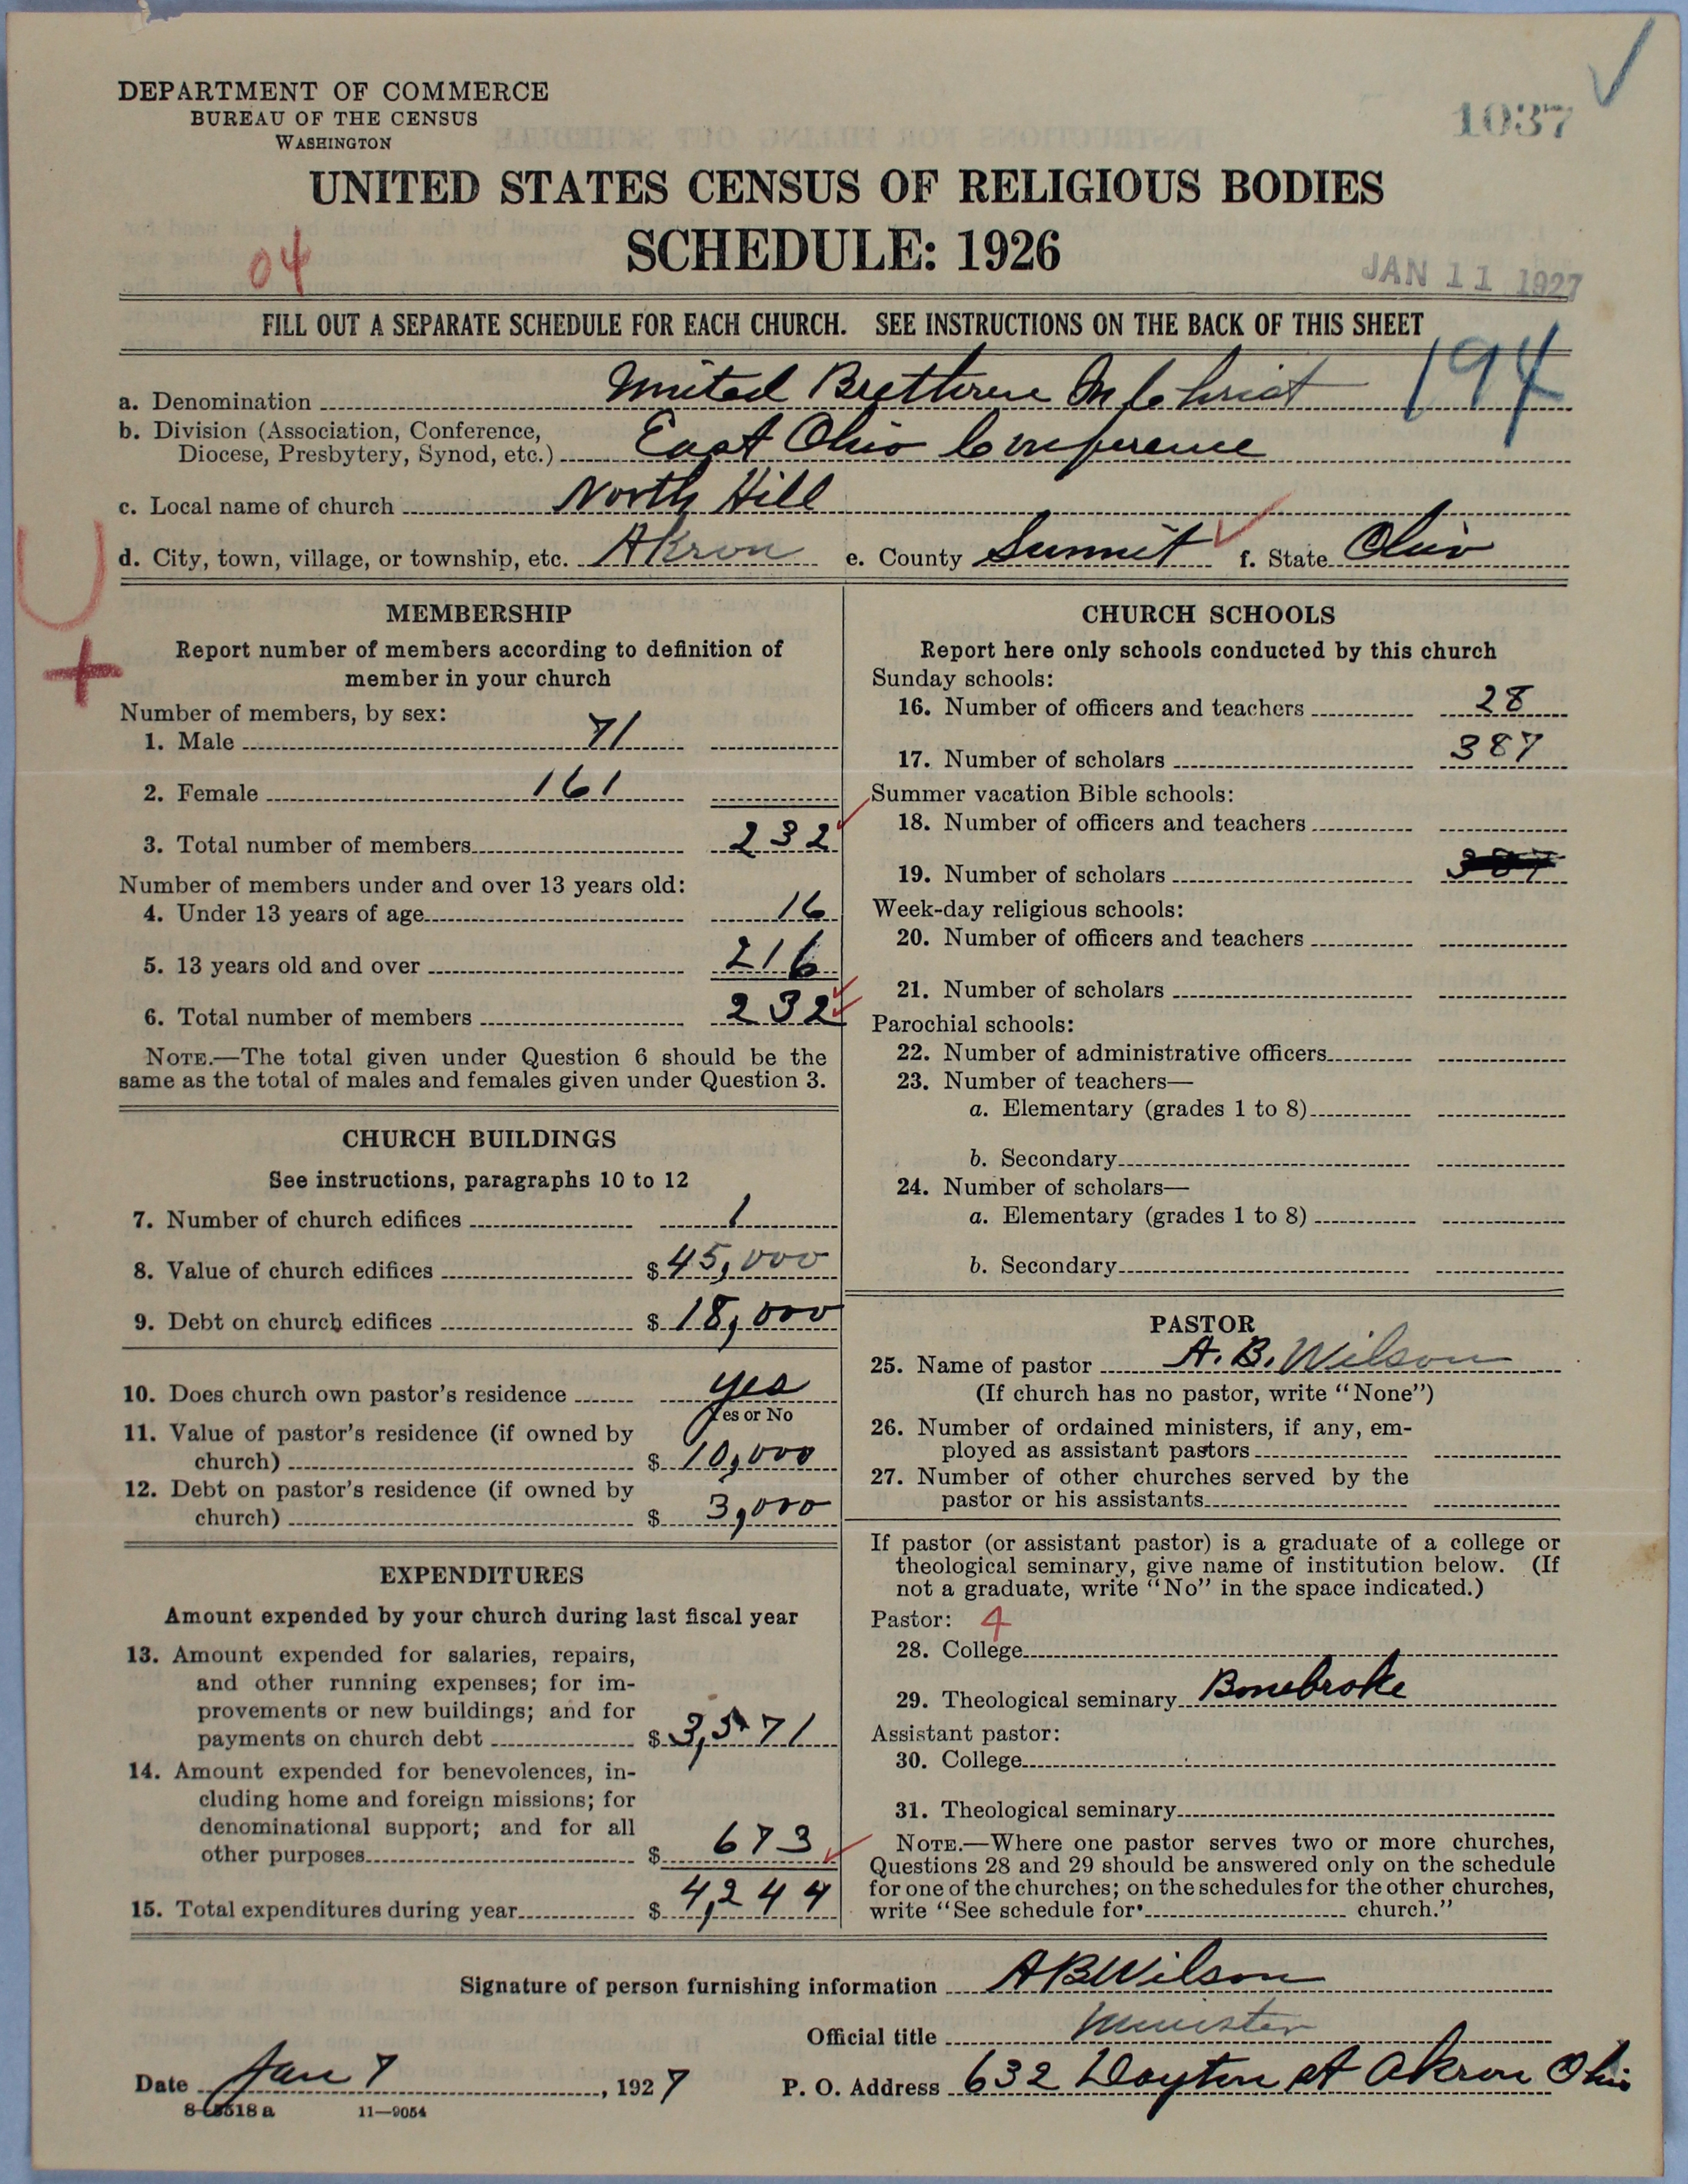 DEPARTMENT OF COMMERCE
BUREAU OF THE CENSUS
WASHINGTON
1037
UNITED STATES CENSUS OF RELIGIOUS BODIES
SCHEDULE: 1926
04
JAN 11 1927
FILL OUT A SEPARATE SCHEDULE FOR EACH CHURCH. SEE INSTRUCTIONS ON THE BACK OF THIS SHEET
194
a. Denomination United Brethren In Christ
b. Division (Association, Conference,
Diocese, Presbytery, Synod, etc.) East Ohio Conference
c. Local name of church North Hill
d. City, town, village, or township, etc. Akron e. County Summit f. State Ohio
U
+
MEMBERSHIP
Report number of members according to definition of
member in your church
Number of members, by sex:
1. Male 71
2. Female 161
3. Total number of members 232
Number of members under and over 13 years old:
4. Under 13 years of age 16
5. 13 years old and over 216
6. Total number of members 232
NOTE.—The total given under Question 6 should be the
same as the total of males and females given under Question 3.
CHURCH BUILDINGS
See instructions, paragraphs 10 to 12
7. Number of church edifices 1
8. Value of church edifices $45,000
9. Debt on church edifices $18,000
10. Does church own pastor's residence yes
Yes or No
11. Value of pastor's residence (if owned by
church) $10,000
12. Debt on pastor's residence (if owned by
church) $3,000
EXPENDITURES
Amount expended by your church during last fiscal year
13. Amount expended for salaries, repairs,
and other running expenses; for im-
provements or new buildings; and for
payments on church debt $3,571
14. Amount expended for benevolences, in-
cluding home and foreign missions; for
denominational support; and for all
other purposes $673
15. Total expenditures during year $4,244
CHURCH SCHOOLS
Report here only schools conducted by this church
Sunday schools:
16. Number of officers and teachers 28
17. Number of scholars 387
Summer vacation Bible schools:
18. Number of officers and teachers
19. Number of scholars
Week-day religious schools:
20. Number of officers and teachers
21. Number of scholars
Parochial schools:
22. Number of administrative officers
23. Number of teachers—
a. Elementary (grades 1 to 8)
b. Secondary
24. Number of scholars—
a. Elementary (grades 1 to 8)
b. Secondary
PASTOR
25. Name of pastor A. B. Wilson
(If church has no pastor, write "None")
26. Number of ordained ministers, if any, em-
ployed as assistant pastors
27. Number of other churches served by the
pastor or his assistants
If pastor (or assistant pastor) is a graduate of a college or
theological seminary, give name of institution below. (If
not a graduate, write "No" in the space indicated.)
Pastor: 4
28. College
29. Theological seminary Bonebrake
Assistant pastor:
30. College
31. Theological seminary
NOTE.—Where one pastor serves two or more churches,
Questions 28 and 29 should be answered only on the schedule
for one of the churches; on the schedules for the other churches,
write "See schedule for church."
Signature of person furnishing information AB Wilson
Official title Minister
Date Jan 7, 1927 P. O. Address 632 Dayton st Akron Ohio
11—9054